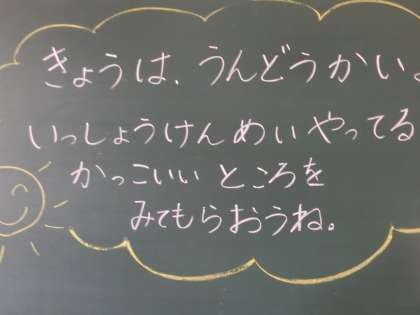 きょうは、うんどうかい。
いっしょうけんめいやってる
かっこいいところを
みてもらおうね。